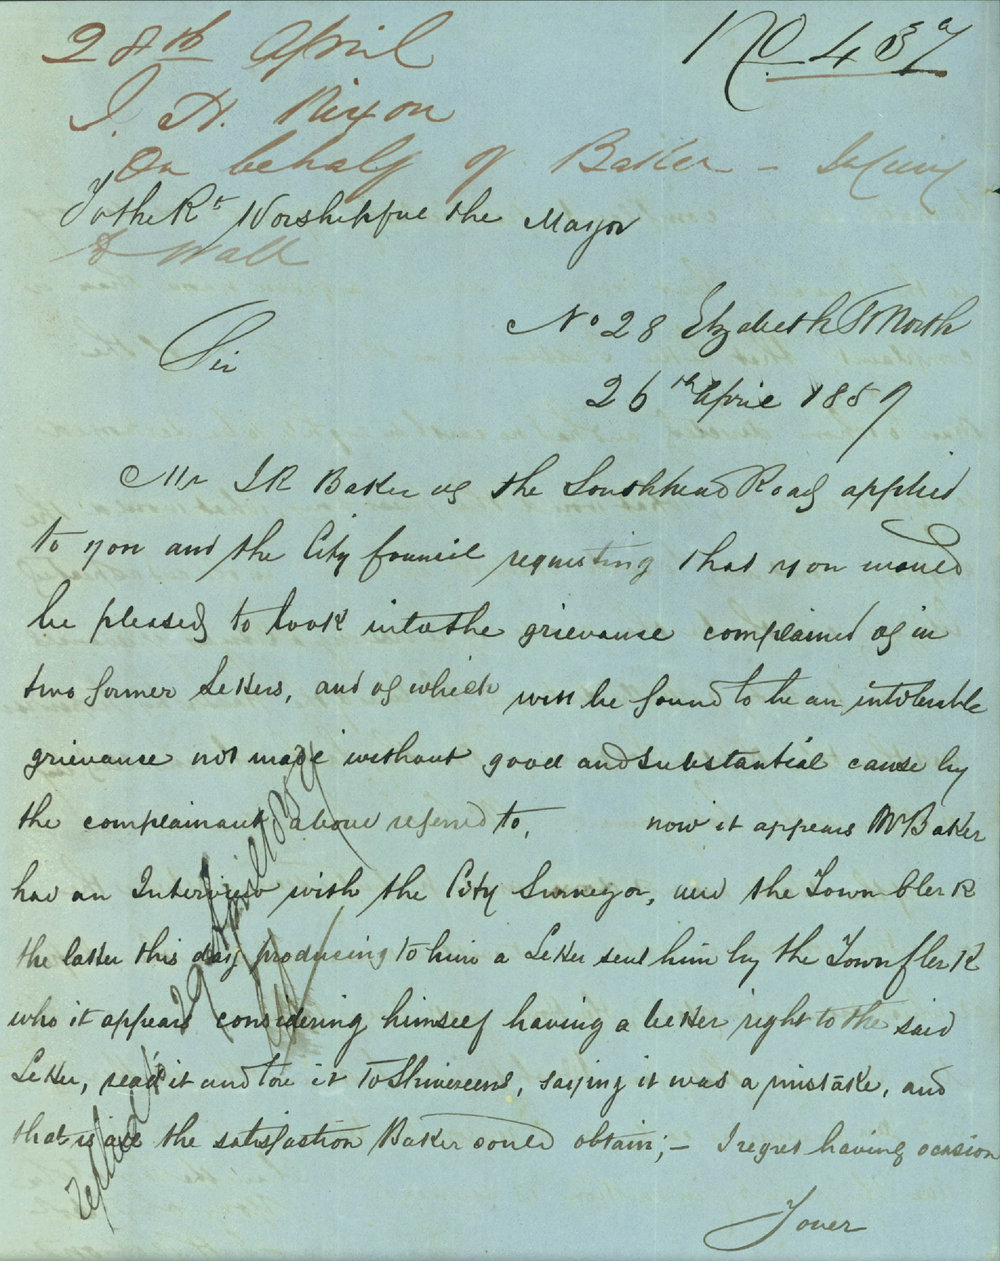 28th April
No 437
J. H. Nixon
On behalf of Baker -
To the Rt Worshipful the Mayor
& Wall
No 28 Elizabeth St North
Sir
26th April 1857
Mr J R Baker of the Southhead Road applied
to you and the City Council requesting that you would
be pleased to look into the grievance complained of in
two former Letters, and of which will be found to be an intolerable
grievance not made without good and substantial cause by
the complainant above referred to, now it appears Mr Baker
had an Interview with the City Surveyor, and the Town Clerk
the latter this day producing to him a Letter sent him by the Town Clerk
who it appears considering himself having a better right to the said
Letter, read it and tore it to Shivereens, saying it was a mistake, and
that is all the satisfaction Baker could obtain; - I regret having ocasion
replied to 29 April 1857
Your